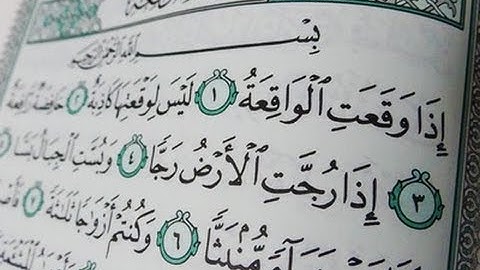 بِسْمِ ٱللَّهِ ٱلرَّحْمَٰنِ ٱلرَّحِيمِ
إِذَا وَقَعَتِ ٱلْوَاقِعَةُ ١ لَيْسَ لِوَقْعَتِهَا كَاذِبَةٌ ٢ خَافِضَةٌ رَّافِعَةٌ
٣ إِذَا رُجَّتِ ٱلْأَرْضُ رَجًّا ٤ وَبُسَّتِ ٱلْجِبَالُ بَسًّا
هَبَآءً مُّنۢبَثًّا ٦ وَكُنتُمْ أَزْوَٰجًا ثَلَٰثَةً ٧